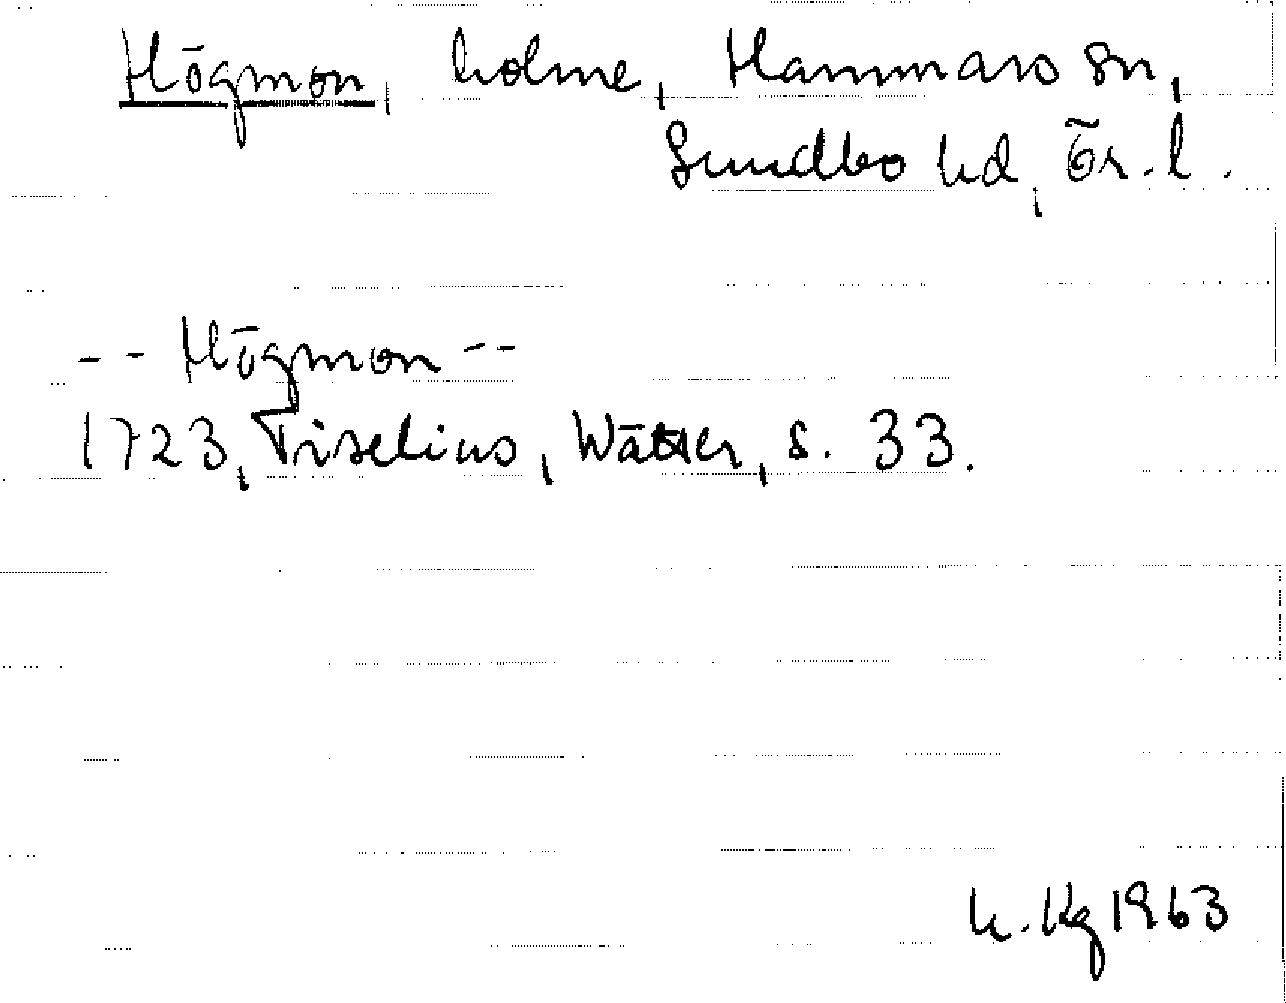 Högmon, holme, Hammars sn,
Sundbo hd, Ör. l.
-- Högmon --
1723, Tiselius, Wätter, s. 33.
K. Kg 1963